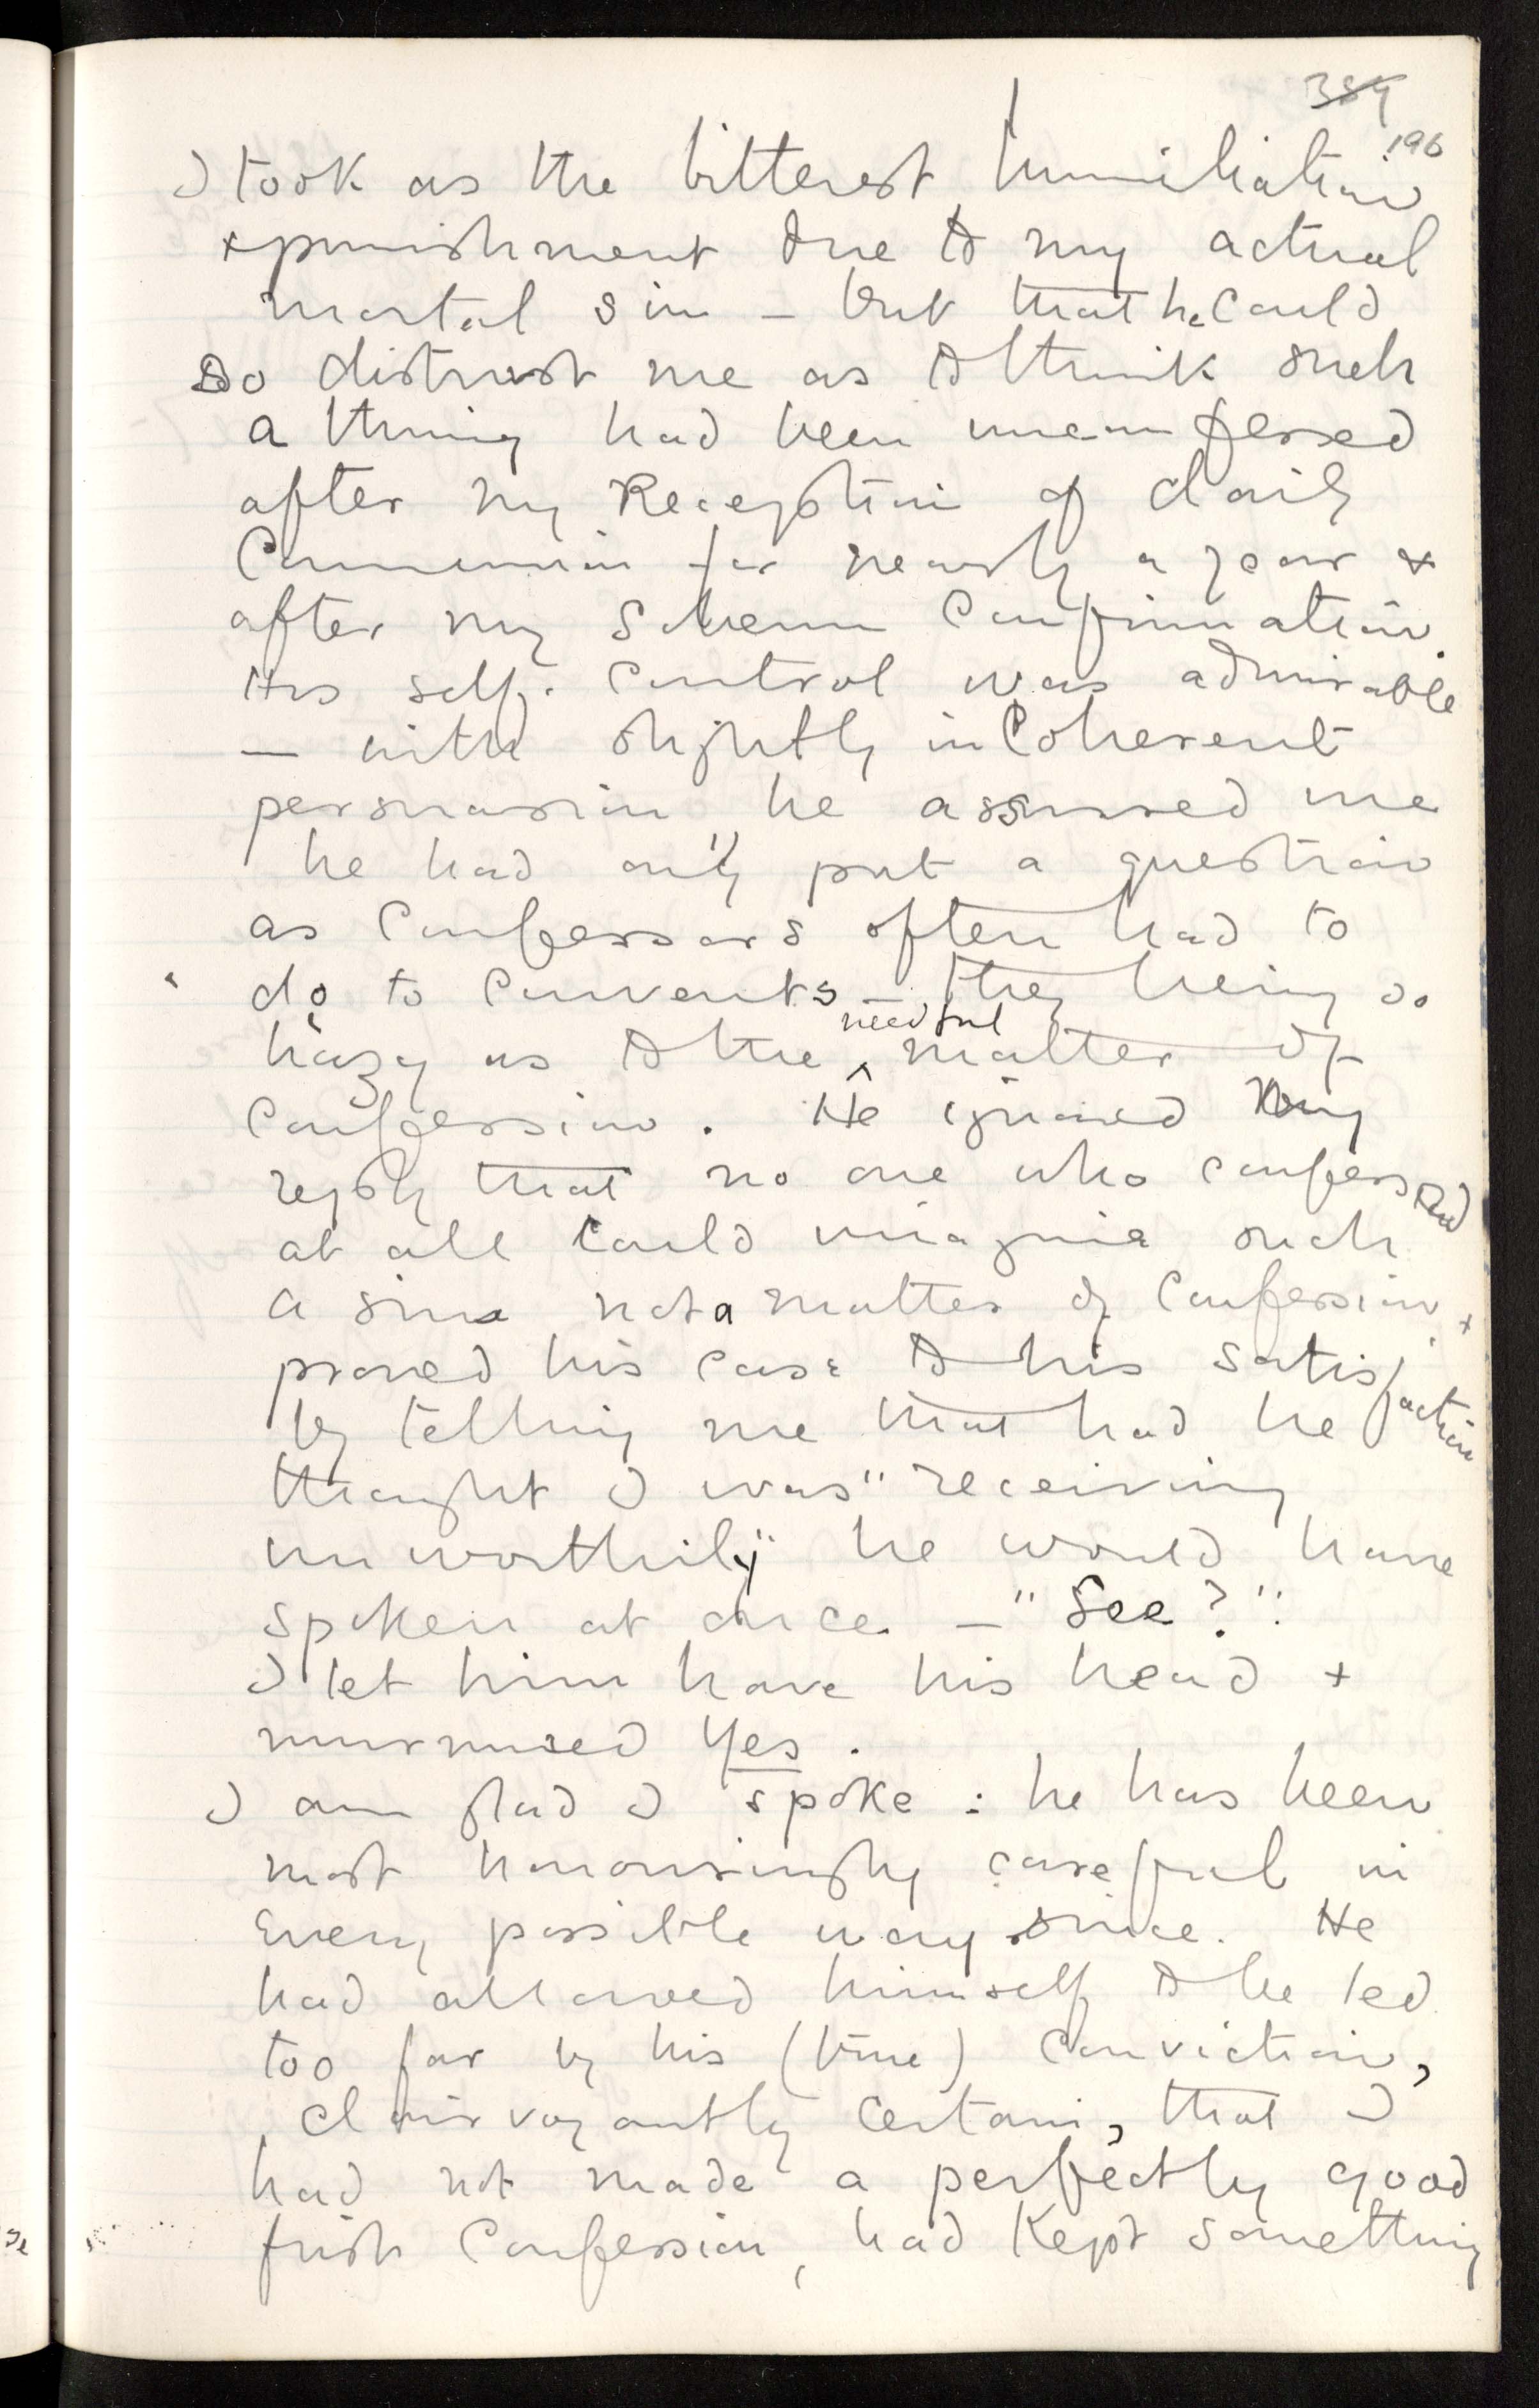 384
196
I took as the bitterest humiliation
+ punishment due to my actual
mortal sin – but that he could
so distrust me as to think such
a thing had been unconfessed
after my Reception of daily
Communion for nearly a year &
after my solemn Confirmation.
His self-control was admirable
– with slightly incoherent
persuasion he assured me
he had only put a question
as Confessors often had to
do to Converts – they being so
hazy as to the needful matter of
Confession. He ignored my
reply that no one who confessed
at all could imagine such
a sin not a matter of Confession, +
proved his case to his satisfaction
by telling me that had he
thought I was "receiving
unworthily" he would have
spoken at once. – "See?".
I let him have his head +
murmured Yes.
I am glad I spoke: he has been
most honouringly careful in
every possible way since. He
had allowed himself to be led
too far by his (true) conviction,
clairvoyantly certain, that I
had not made a perfectly good
first Confession, had kept something